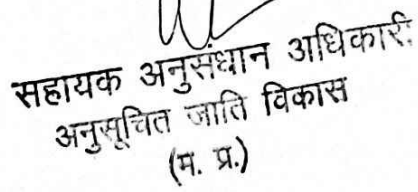 सहायक अनुसंधान अधिकारी
अनुसूचित जाति विकास
(म. प्र.)